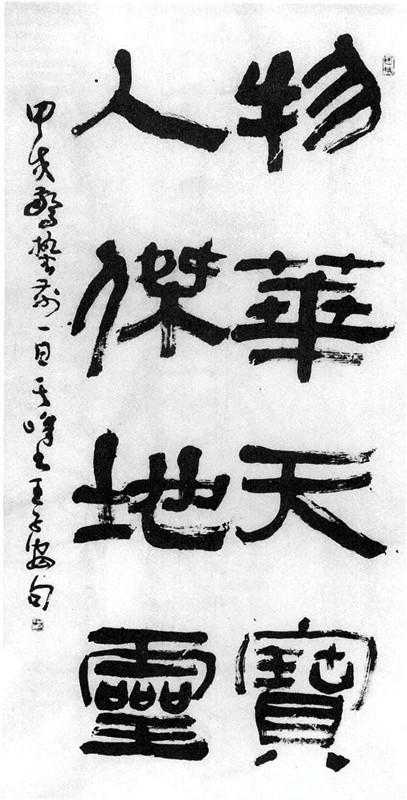 物華天寶
人傑地靈
甲戌驚蟄前一日峰書王子安句